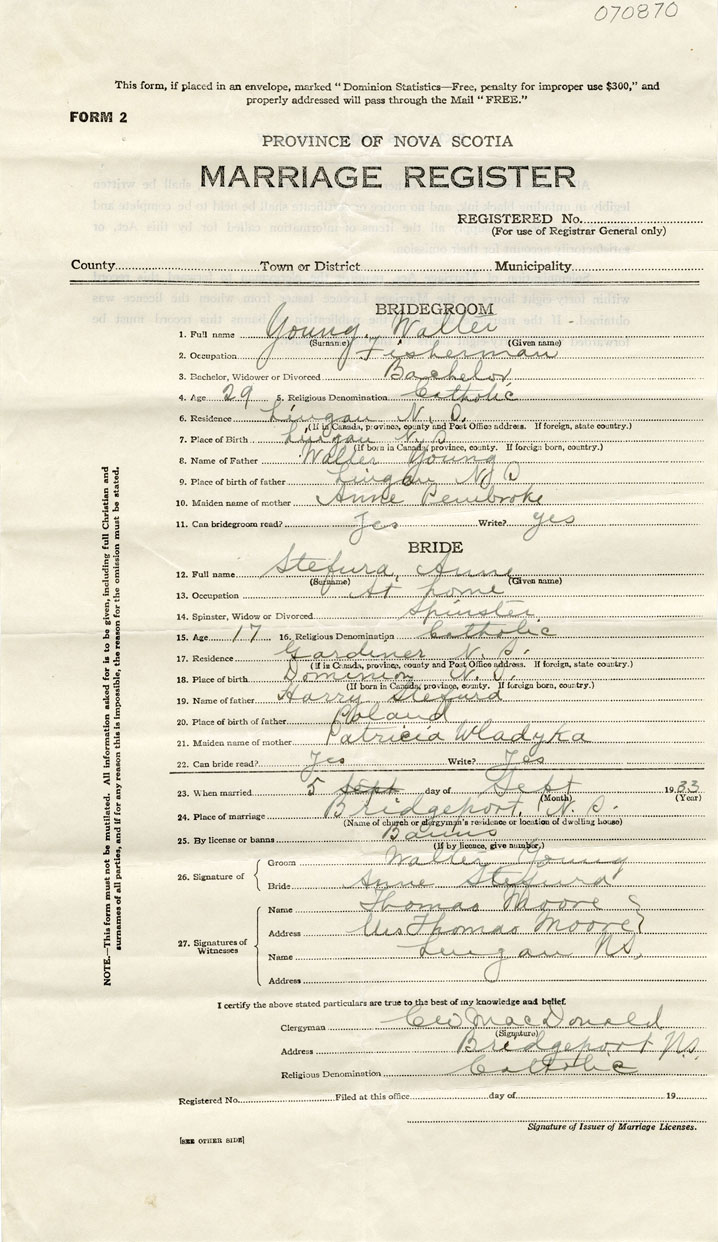 070870
This form, if placed in an envelope, marked "Dominion Statistics—Free, penalty for improper use $300," and
properly addressed will pass through the Mail "FREE."
FORM 2
PROVINCE OF NOVA SCOTIA
MARRIAGE REGISTER
REGISTERED No.
(For use of Registrar General only)
County Town or District Municipality
BRIDEGROOM
1. Full name Young, Walter
(Surname) (Given name)
2. Occupation Fisherman
3. Bachelor, Widower or Divorced Bachelor
4. Age 29 5. Religious Denomination Catholic
6. Residence Lingan N. S.
(If in Canada, province, county and Post Office address. If foreign, state country.)
7. Place of Birth Lingan N. S
(If born in Canada, province, county. If foreign born, country.)
8. Name of Father Walter Young
9. Place of birth of father Lingan N. S
10. Maiden name of mother Anne Pembroke
11. Can bridegroom read? Yes Write? yes
BRIDE
12. Full name Stefura, Anne
(Surname) (Given name)
13. Occupation At home
14. Spinster, Widow or Divorced Spinster
15. Age 17 16. Religious Denomination Catholic
17. Residence Gardiner N. S.
(If in Canada, province, county and Post Office address. If foreign, state country.)
18. Place of birth Dominion N. S.
(If born in Canada, province, county. If foreign born, country.)
19. Name of father Harry Stefura
20. Place of birth of father Poland
21. Maiden name of mother Patricia Wladyka
22. Can bride read? Yes Write? Yes
23. When married 5 Sept day of Sept 1933
(Month) (Year)
24. Place of marriage Bridgeport, N. S.
(Name of church or clergyman's residence or location of dwelling house)
25. By license or banns Banns
(If by licence, give number.)
26. Signature of
Groom Walter Young
Bride Anne Stefura
27. Signatures of Witnesses
Name Thomas Moore
Address Mrs Thomas Moore
Name Lingan NS.
Address
I certify the above stated particulars are true to the best of my knowledge and belief.
Clergyman MacDonald
(Signature)
Address Bridgeport N.S.
Religious Denomination Catholic
Registered No. Filed at this office day of 19
Signature of Issuer of Marriage Licenses.
[SEE OTHER SIDE]
NOTE.—This form must not be mutilated. All information asked for is to be given, including full Christian and
surnames of all parties, and if for any reason this is impossible, the reason for the omission must be stated.